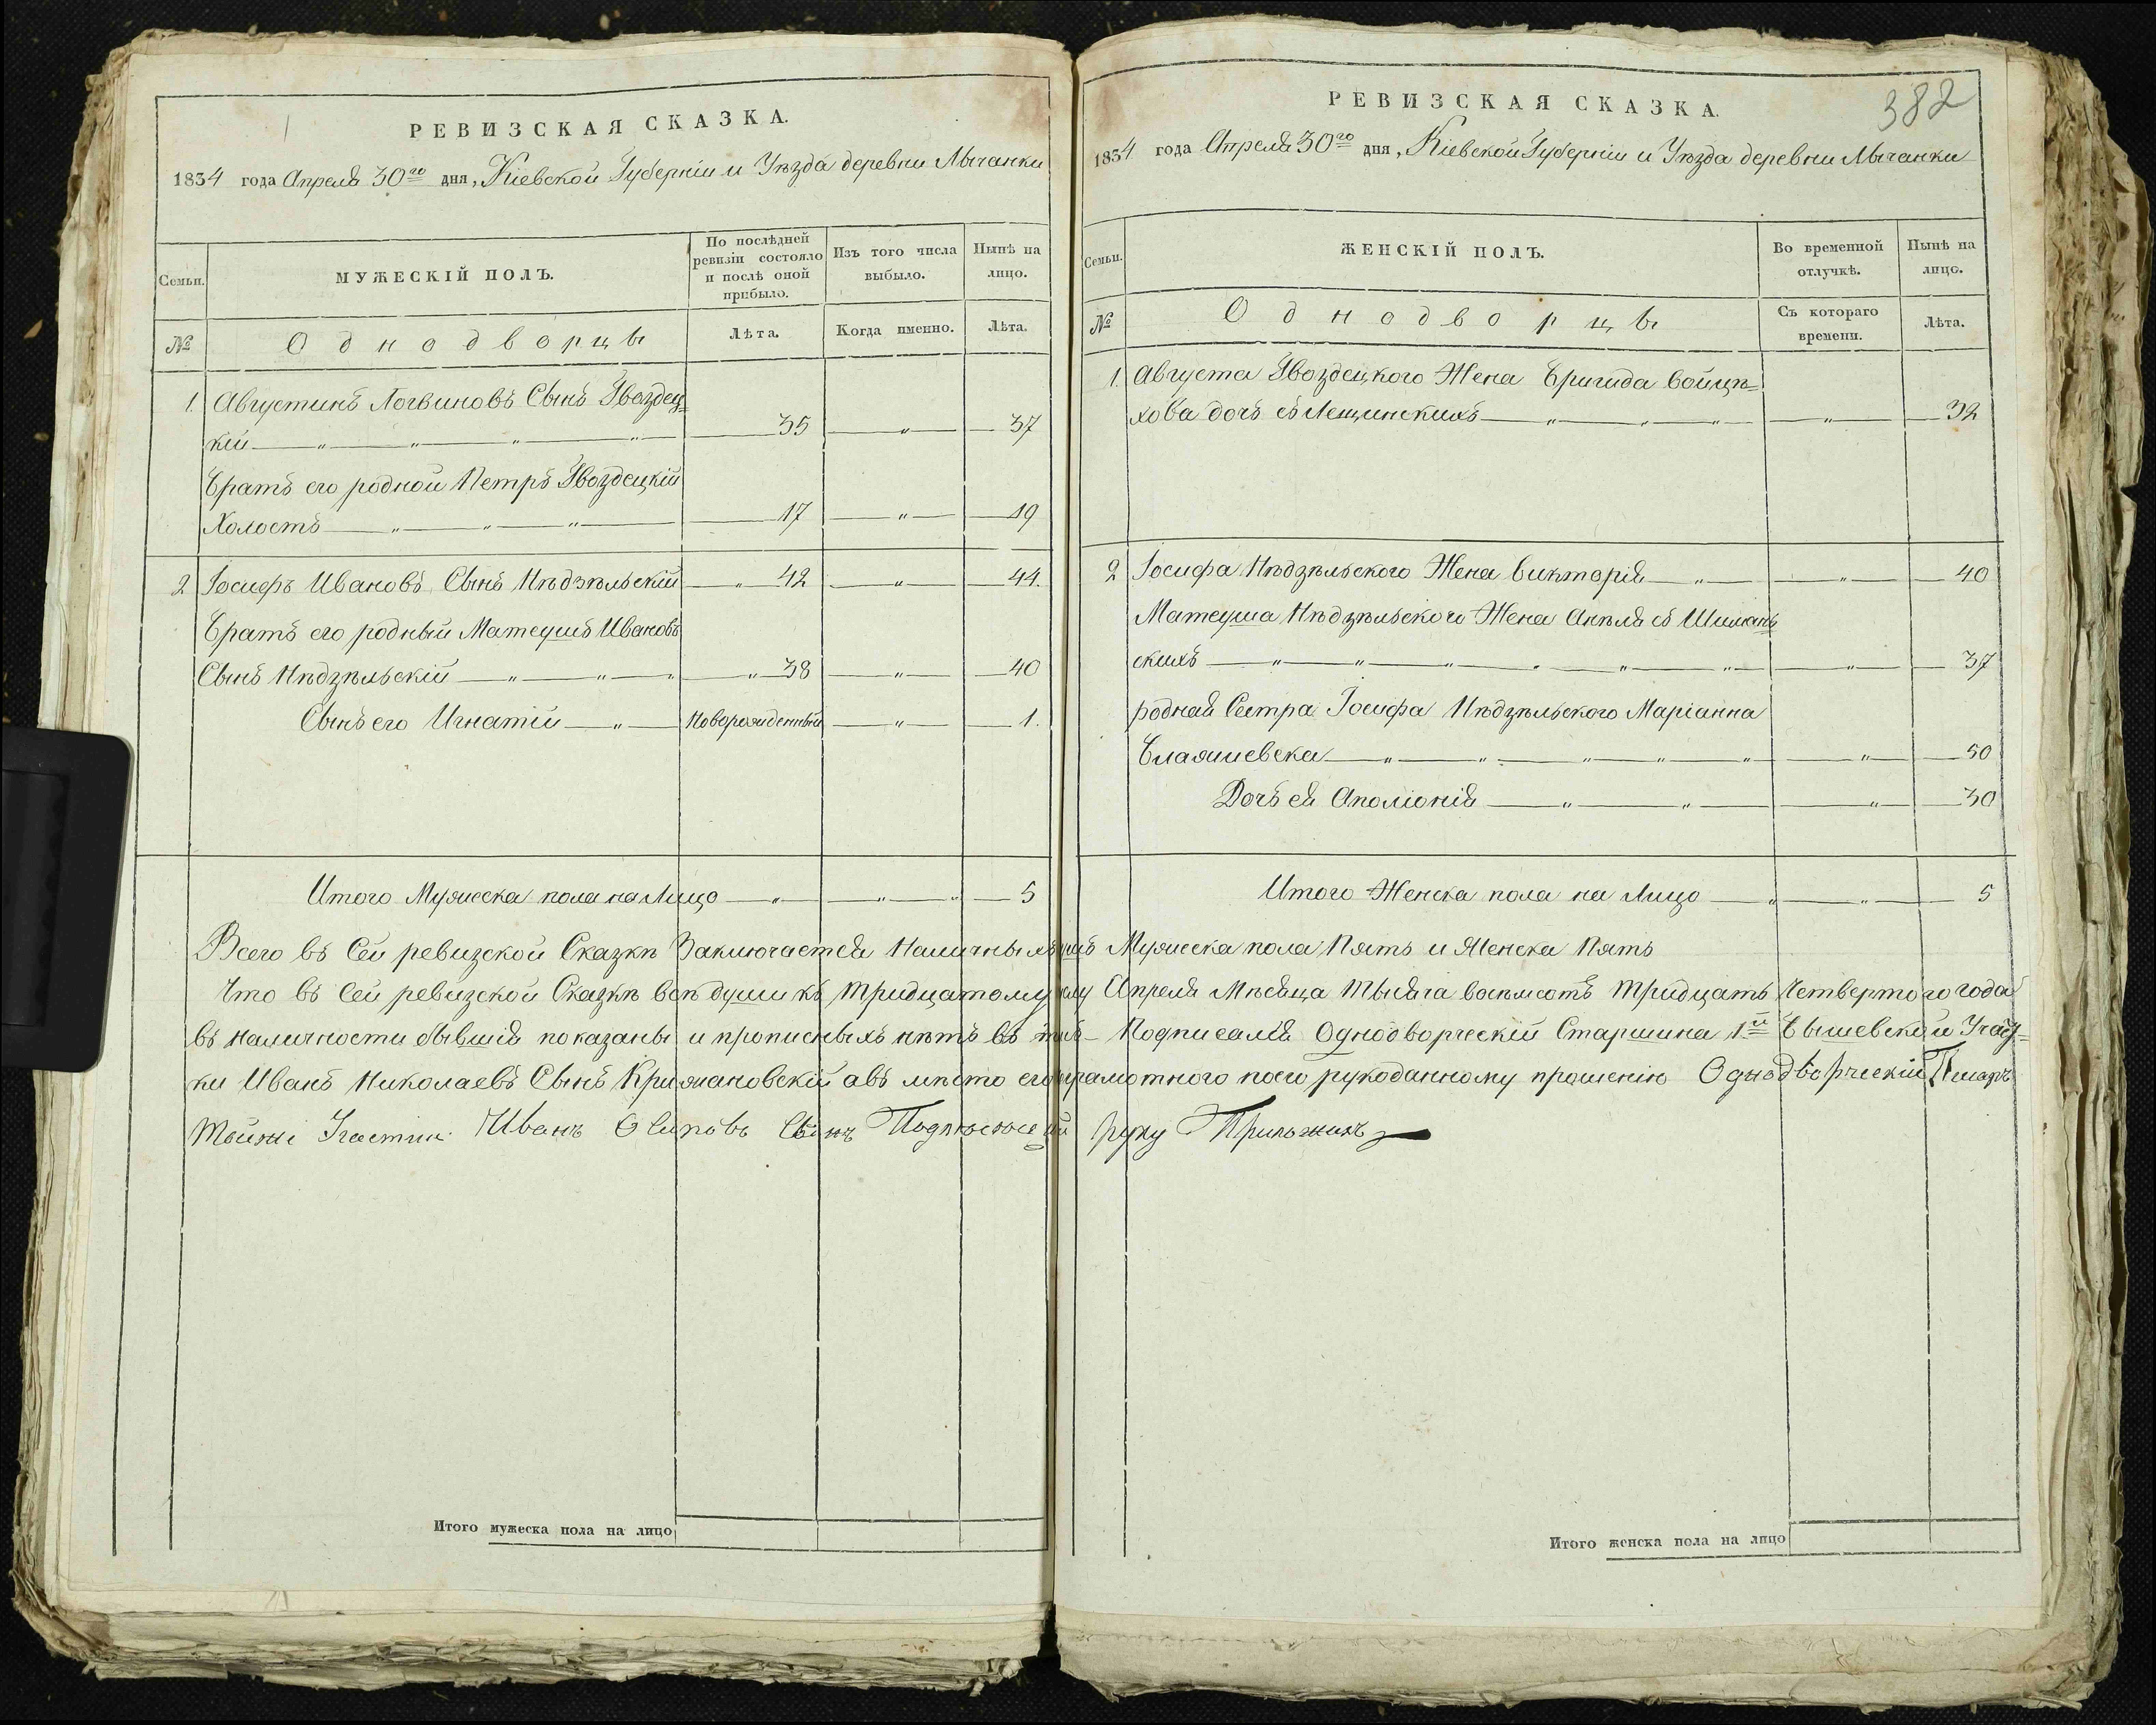 РЕВИЗСКАЯ СКАЗКА.
1834 года Апреля 30го дня, Кіевской Губерніи и Уѣзда деревни Мычанки
Семьи.
МУЖЕСКІЙ ПОЛЪ.
По послѣдней ревизіи состояло и послѣ оной прибыло.
Изъ того числа выбыло.
Нынѣ на лицо.
№
Однодворцы
Лѣта.
Когда именно.
Лѣта.
1. Августинъ Логвиновъ Сынъ Гвоздец=
кій — „ — „ — „ — „ — 35 — „ — 37
Братъ его родной Петръ Гвоздецкій
Холостъ — „ — „ — „ — 17 — „ — 19
2 Іосифъ Ивановъ Сынъ Нѣдзѣльскій — „ 42 — „ — 44.
Братъ его родный Матеушъ Ивановъ
Сынъ Нѣдзѣльскій — „ — „ — „ — „ — 38 — „ — 40
Сынъ его Игнатій — „ — Новорожденный — „ — 1.
Итого Мужеска пола на Лицо — „ — „ — „ — 5
РЕВИЗСКАЯ СКАЗКА.
382
1834 года Апреля 30го дня, Кіевской Губерніи и Уѣзда деревни Мычанки
Семьи.
ЖЕНСКІЙ ПОЛЪ.
Во временной отлучкѣ.
Нынѣ на лицо.
№
Однодворцы
Съ котораго времени.
Лѣта.
1. Августа Гвоздецкого Жена Бригида Войцѣ=
хова дочъ съ Лещинскихъ — „ — „ — „ — „ — 32
2 Іосифа Нѣдзѣльского Жена Викторія — „ — „ — 40
Матеуша Нѣдзѣльского Жена Анѣля съ Шиманъ
скихъ — „ — „ — „ — „ — „ — „ — „ — 37
родная Сестра Іосифа Нѣдзѣльского Маріанна
Блажіевска — „ — „ — „ — „ — „ — „ — 50
Дочъ ея Аполіонія — „ — „ — „ — 30
Итого Женска пола на Лицо — „ — „ — 5
Всего въ Сей ревизской Сказкѣ Заключается Наличныхъ душъ Мужеска пола Пять и Женска Пять
Что въ Сей ревизской Сказкѣ всѣ души къ тридцатому числу Апреля Мѣсяца тысяча восѣмсотъ тридцать Четвертого года
въ наличности бывшія показаны и прописныхъ нѣтъ въ томъ Подписался Однодворческій Старшина 1й Бышевской Участ=
ки Иванъ Николаевъ Сынъ Крижановскій авъ мѣсто его грамотного по его рукоданному прошенію Однодворческій Писаръ
Тойжі Участки Иванъ Осиповъ Сынъ руку Приложилъ
Итого мужеска пола на лицо
Итого женска пола на лицо